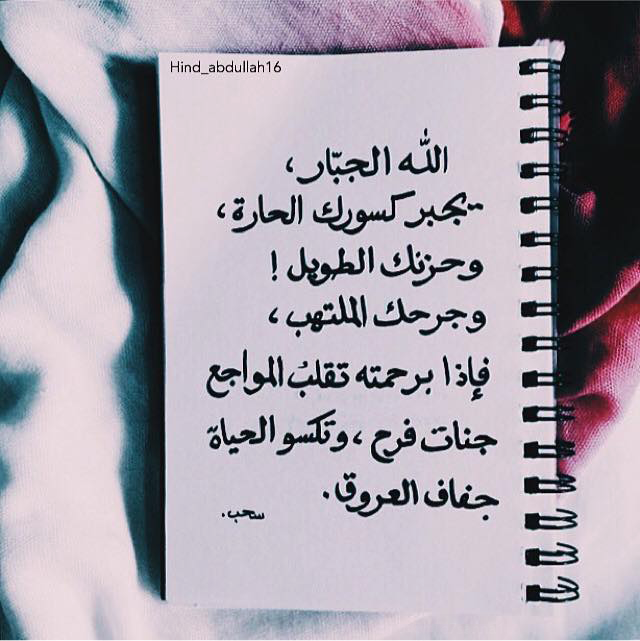 Hind_abdullah16
الله الجبّار،
يجبر كسورك الحارة،
وحزنك الطويل !
وجرحك الملتهب،
فإذا برحمته تقلبُ المواجع
جنات فرح، وتكسو الحياة
جفاف العروق.
سحب.